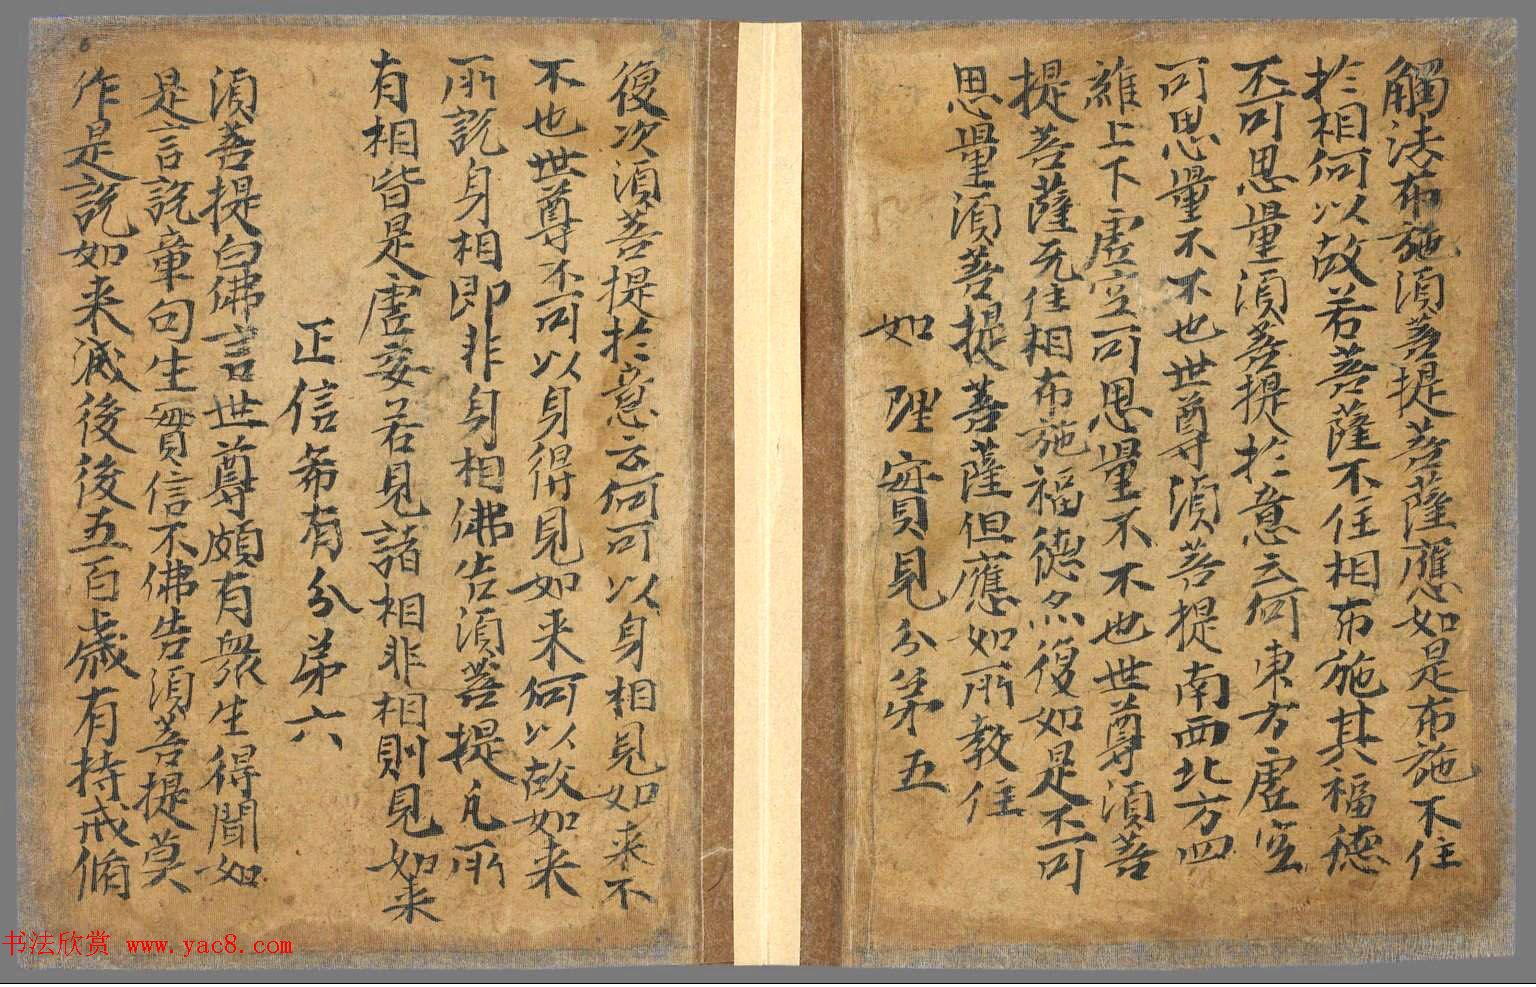 觸法布施須菩提菩薩應如是布施不住
於相何以故若菩薩不住相布施其福德
不可思量須菩提於意云何東方虛空
可思量不不也世尊須菩提南西北方四
維上下虛空可思量不不也世尊須菩
提菩薩无住相布施福德亦復如是不可
思量須菩提菩薩但應如所教住
如理實見分第五
復次須菩提於意云何可以身相見如来不
不也世尊不可以身得見如来何以故如来
所説身相即非身相佛告須菩提凡所
有相皆是虛妄若見諸相非相則見如来
正信希有分第六
須菩提白佛言世尊頗有衆生得聞如
是言説章句生實信不佛告須菩提莫
作是説如来滅後後五百歲有持戒脩
6
书法欣赏 www.yac8.com